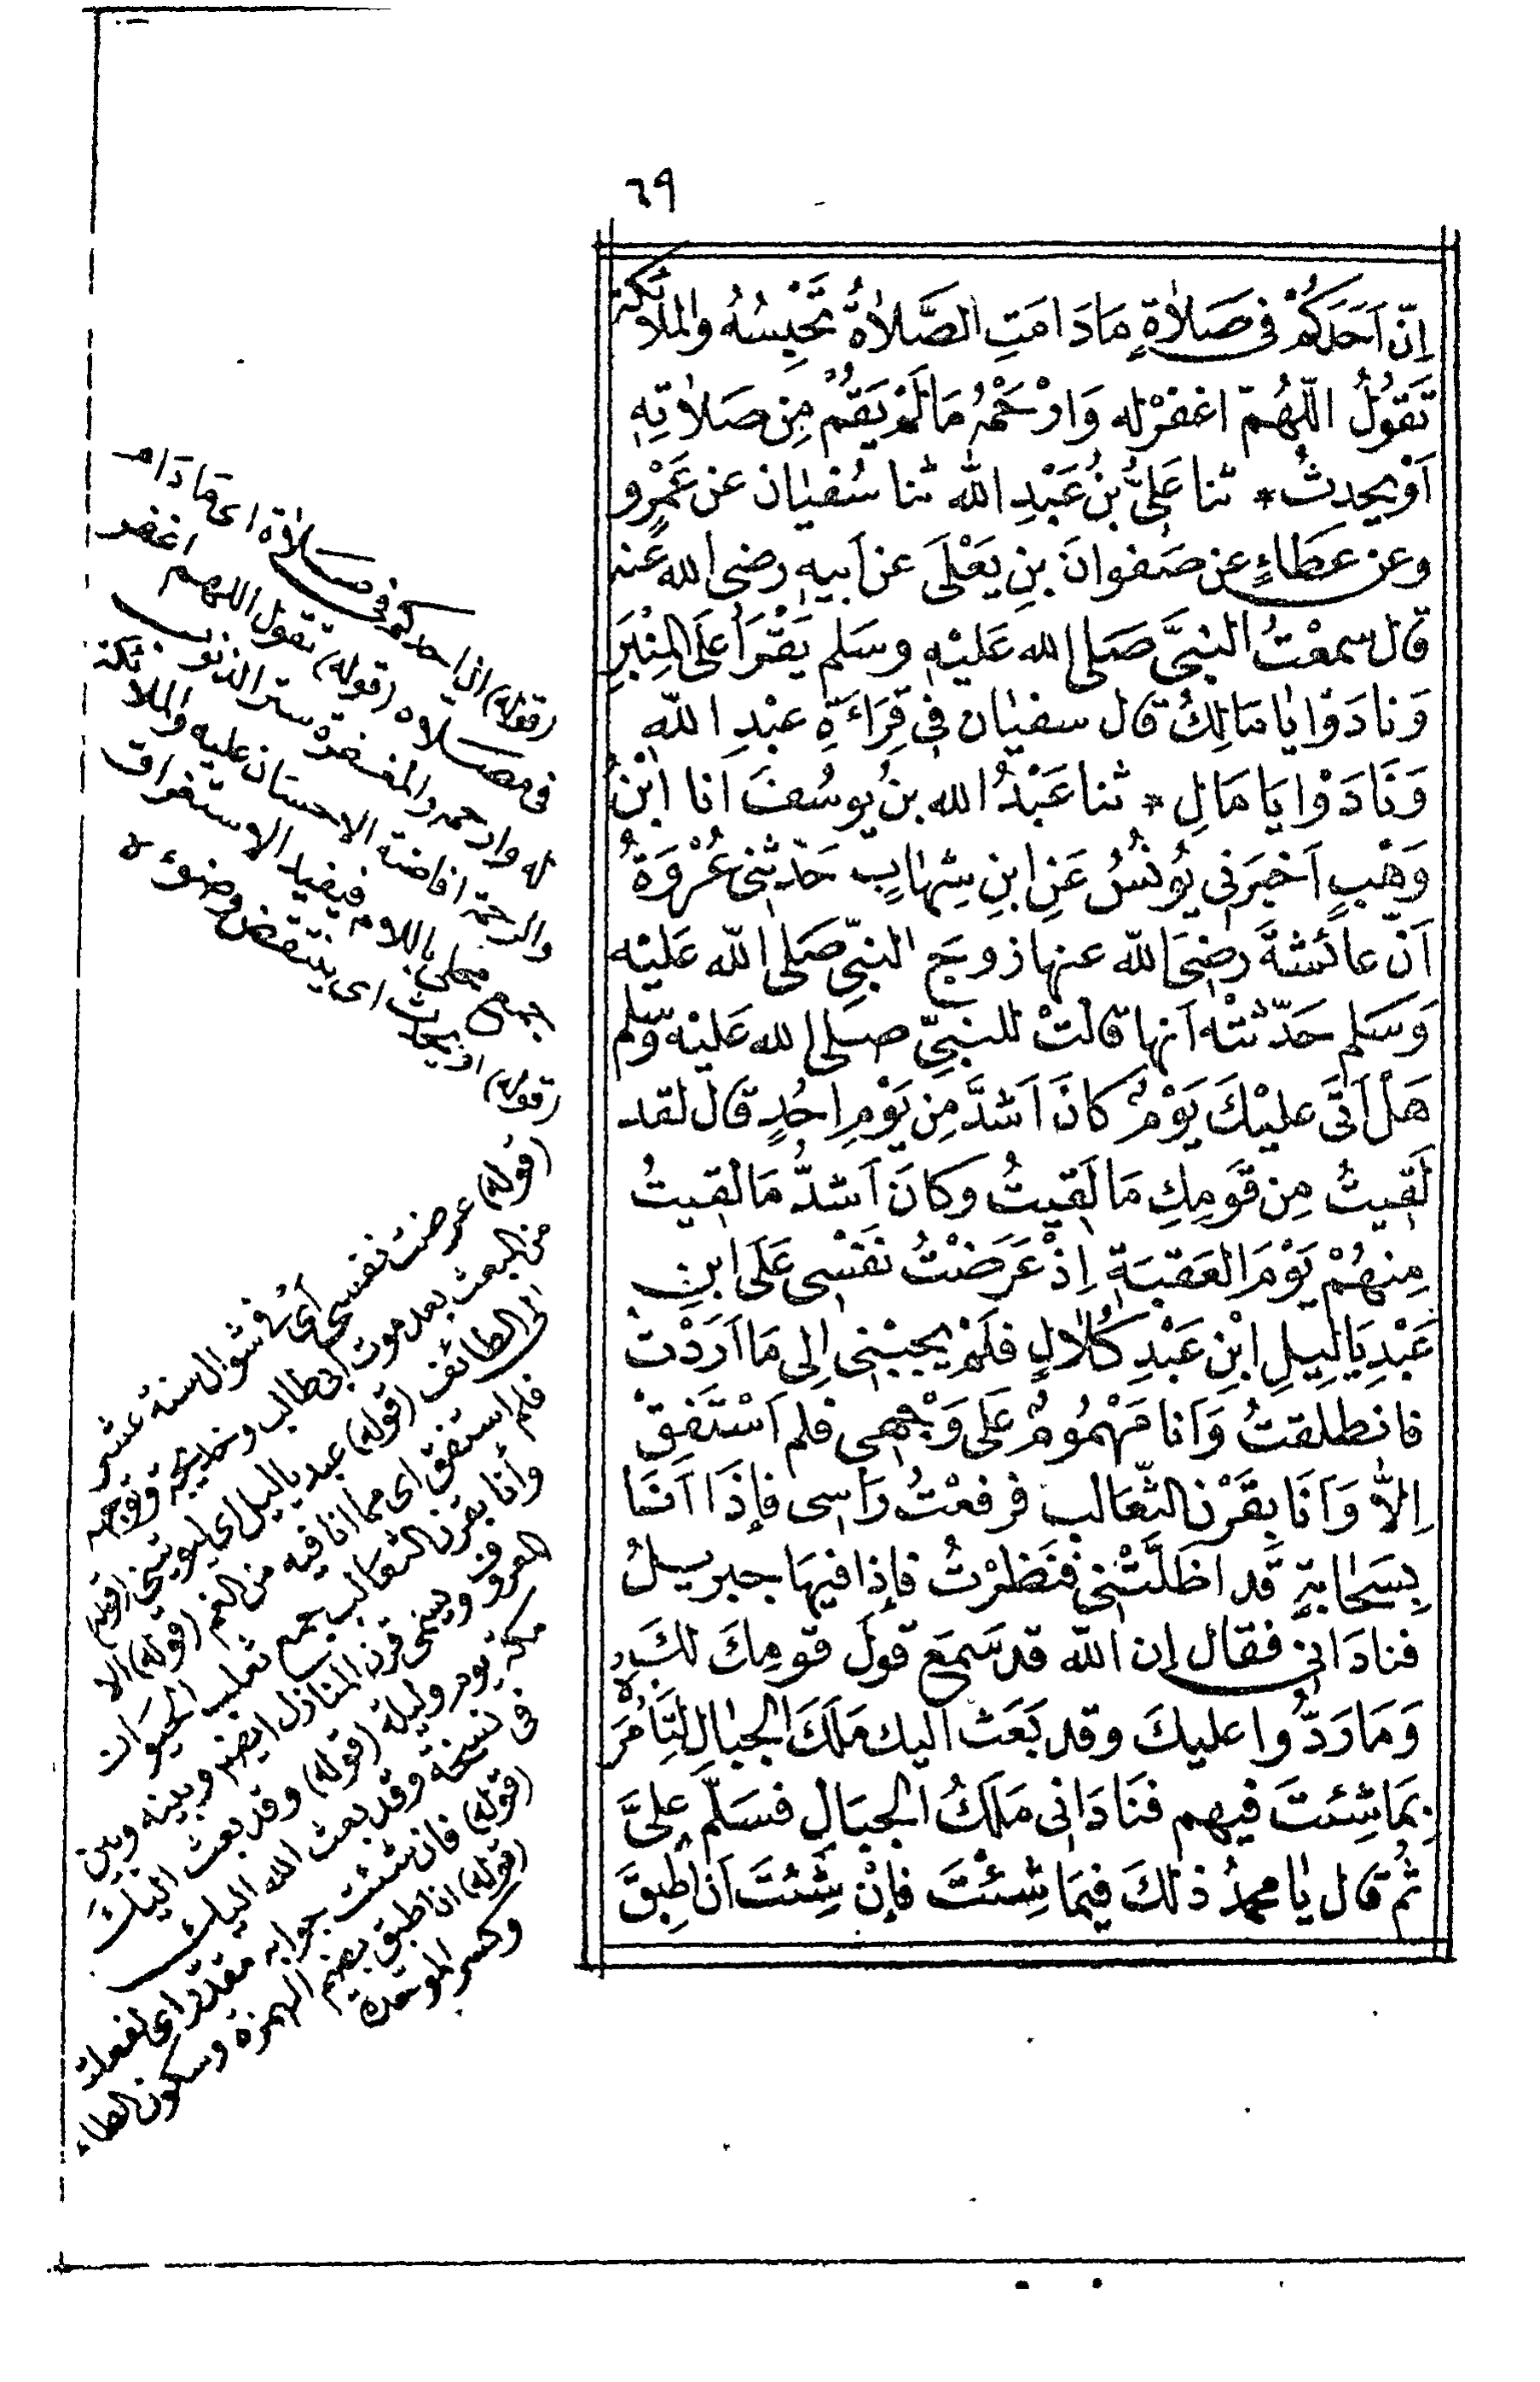 ٦٩
اِنَّ اَحَدَكُمْ فى صَلاٰةٍ مَادَامَتِ الصَّلاٰةُ تَحْبِسُهُ والملائكة
تَقُولُ اللّهُمّ اغفرْله وَارْحَمْهُ مَالَمْ يَقُمْ مِن صَلاٰتِهِ
اَوْيحدثْ * ثنا عَلىُّ بنُ عَبْدِ الله ثنا سُفيٰان عن عَمْرٍو
وعن عطَاءٍ عن صَفوانَ بنِ يَعْلَى عن اَبيهِ رضى الله عنه
قال سمعْتُ النبىَّ صَلى الله عَليْهِ وسَلم يَقْرَأُ عَلَى المِنْبَرِ
وَنادَوْا يٰا مَالِكُ قال سفيٰان فى قِرَاءَةِ عبْدِ الله
وَنَادَوْا يَا مَالِ * ثنا عَبْدُ الله بنُ يوسُفَ انا ابْنُ
وَهْبٍ اَخبَرَنى يُونُسُ عَنِ ابنِ شِهابٍ حَدّثنى عُرْوَةُ
اَنّ عائشةَ رضىَ الله عنها زوجَ النبىِّ صَلى الله عَليْه
وَسَلم حَدّثتْه اَنها قالتْ للنبىِّ صلى الله عَليْه وَسلم
هَلْ اَتَى عليْكَ يَوْمٌ كانَ اَشدَّ مِن يَوْمِ احُدٍ قال لقد
لَقيتُ مِن قَومِكِ مَالَقيتُ وكانَ اَشدُّ مَالقيتُ
مِنهُمْ يَوْمَ العَقبَةِ اِذْعَرَضْتُ نَفْسِى عَلَى ابنِ
عَبْدِيَالِيلِ ابْنِ عَبْدِ كُلالٍ فلَمْ يجبْنى اِلى مَا اَرَدْتُ
فانطلقتُ وَاَنا مَهْمُومٌ عَلى وَجْهى فلم اَسْتَفِقْ
اِلاَّ وَاَنَا بِقَرْن الثَّعَالب فرفعْتُ رَاسى فإذَا اَنَا
بِسَحَابةٍ قد اظَلَّتْنى فنَظرْتُ فإذا فيهَا جبريلُ
فنادَانى فقال إن الله قد سَمِعَ قولَ قومِكَ لكَ
وَمَارَدُّوا عليكَ وقد بَعَثَ اليك مَلَكَ الجبالِ لِتَأمُرَهُ
بمَاشِئتَ فيهم فنَادَانى مَلَكُ الجبَالِ فسَلّم علىَّ
ثُم قال يٰا محمدُ ذلكَ فيمَا شِئْتَ فإنْ شِئتَ اَن اُطبِقَ
(قوله) ان احدكم فى صلاة اى مادام
فى مصلاه (قوله) تقول اللهم اغفر
له وارحمه والمغفرة ستر الذنوب
والرحمة افاضة الاحسان عليه والملائكة
جمع محلى باللام فيفيد الاستغراق
(قوله) اويحدث اى ينتقض وضوءه
(قوله) عرضت نفسى اى فى شوال سنة عشر
من البعث بعد موت ابى طالب وخديجة وتوجه
الى الطائف (قوله) عبد ياليل اى
فلم استفق اى مما أنا فيه من الغم (قوله) الا
وأنا بقرن الثعالب جمع ثعلب الحيوان
المعروف ويسمى قرن المنازل ايضا وبينه وبين
مكة يوم وليلة (قوله) وقد بعث اليك
فى نسخة وقد بعث الله اليك
(قوله) فان شئت جوابه مقدر اى لفعلت
(قوله) ان اطبق بضم الهمزة وسكون الطاء
وكسر الموحدة